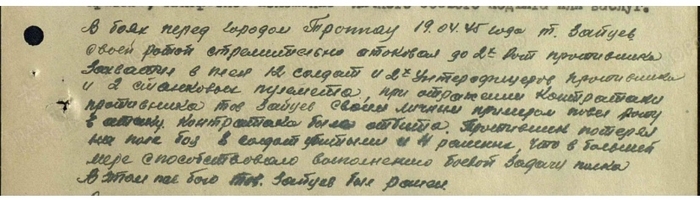 В боях перед городом Троппау 19.04.45 года т. Зайцев
своей ротой стремительно атоковал до 2х рот противника
Захватил в плен 12 солдат и 2х Унтерофицеров противника
и 2 станковых пулемета, при отражении контратаки
противника тов Зайцев своим личным примером повел роту
в атаку. Контратака была отбита. Противник потерял
на поле боя 8 солдат убитыми и 11 ранеными, что в большей
мере способствовало выполнению боевой задачи полка
В этом же бою тов. Зайцев был ранен.